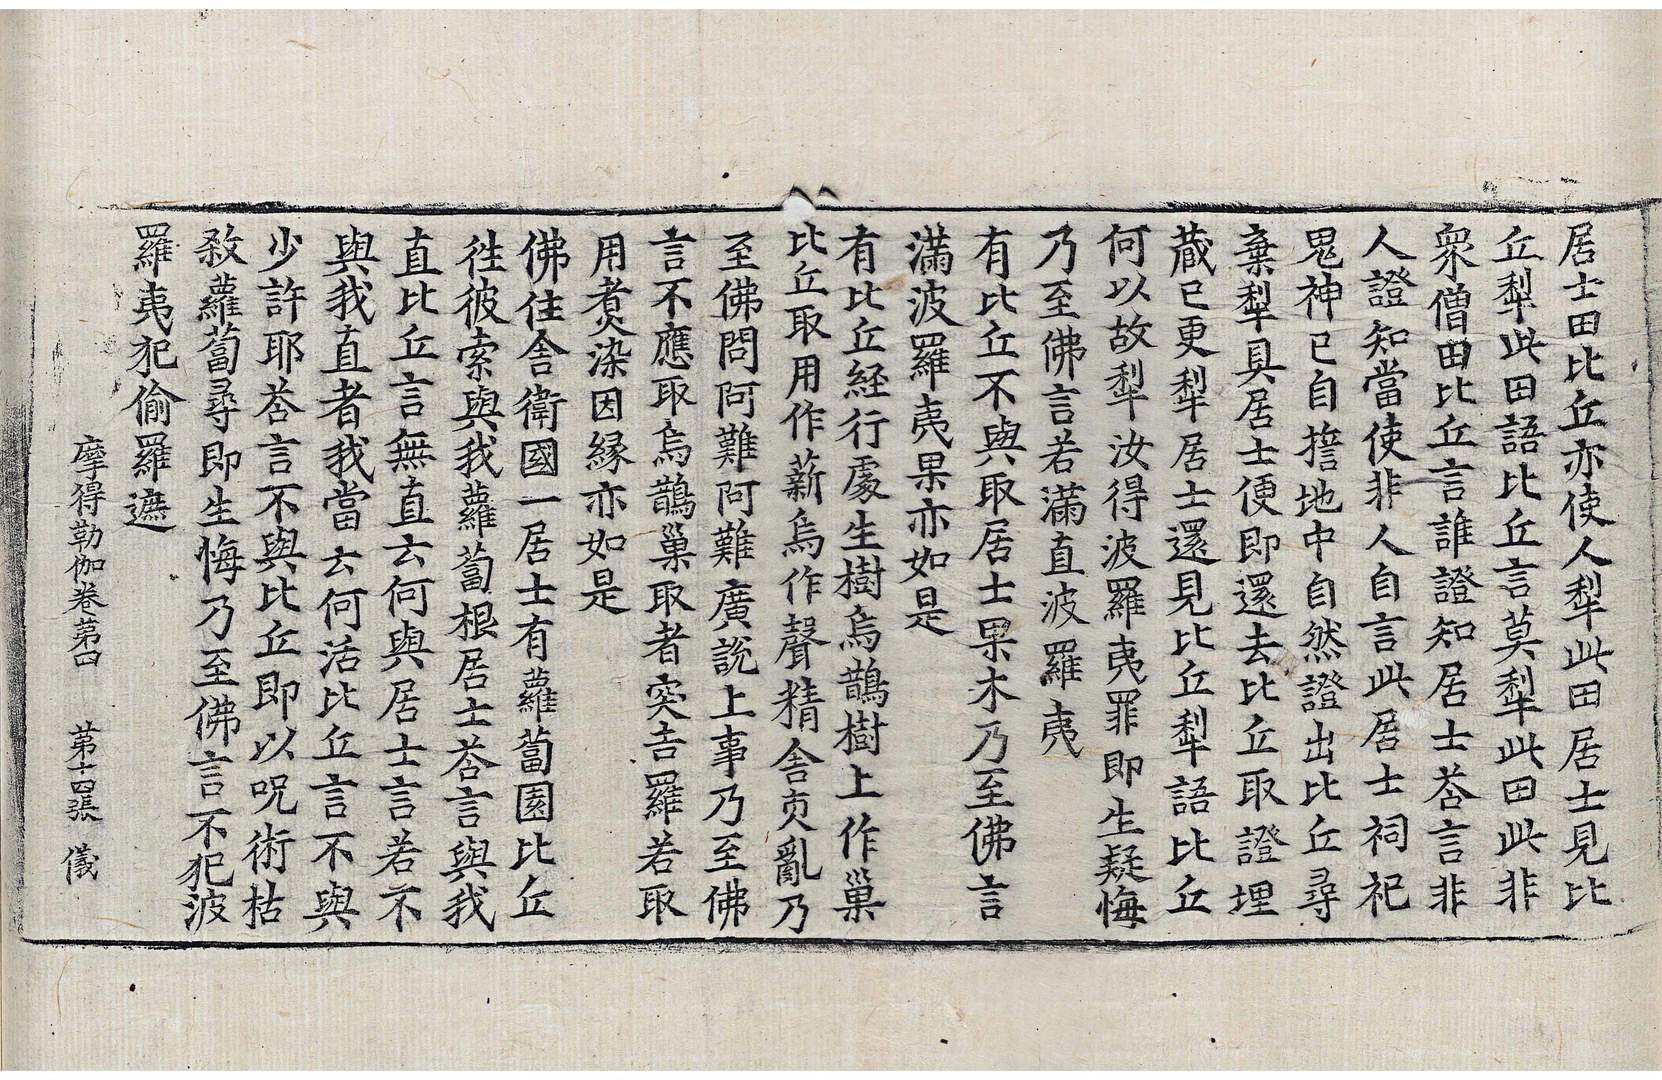 居士田比丘亦使人犁此田居士見比
丘犁此田語比丘言莫犁此田此非
衆僧田比丘言誰證知居士荅言非
人證知當使非人自言此居士祠祀
鬼神已自㩀地中自然證出比丘尋
棄犁具居士便即還去比丘取證埋
蔵已更犁居士還見比丘犁語比丘
何以故犁汝得波羅夷罪即生疑悔
乃至佛言若滿直波羅夷
有比丘不與取居士果木乃至佛言
滿波羅夷果亦如是
有比丘経行處生樹烏鵲樹上作巢
比丘取用作薪烏作聲精舎㕛亂乃
至佛問阿難阿難廣說上事乃至佛
言不應取烏鵲巢取者突吉羅若取
用煑染因緣亦如是
佛住舎衛國一居士有蘿蔔園比丘
徃彼索與我蘿蔔根居士荅言與我
直比丘言無直云何與居士言若不
與我直者我當云何活比丘言不與
少許耶荅言不與比丘即以呪術枯
敎蘿蔔尋即生悔乃至佛言不犯波
羅夷犯偷羅遮
摩得勒伽卷第四 第十四張 儀